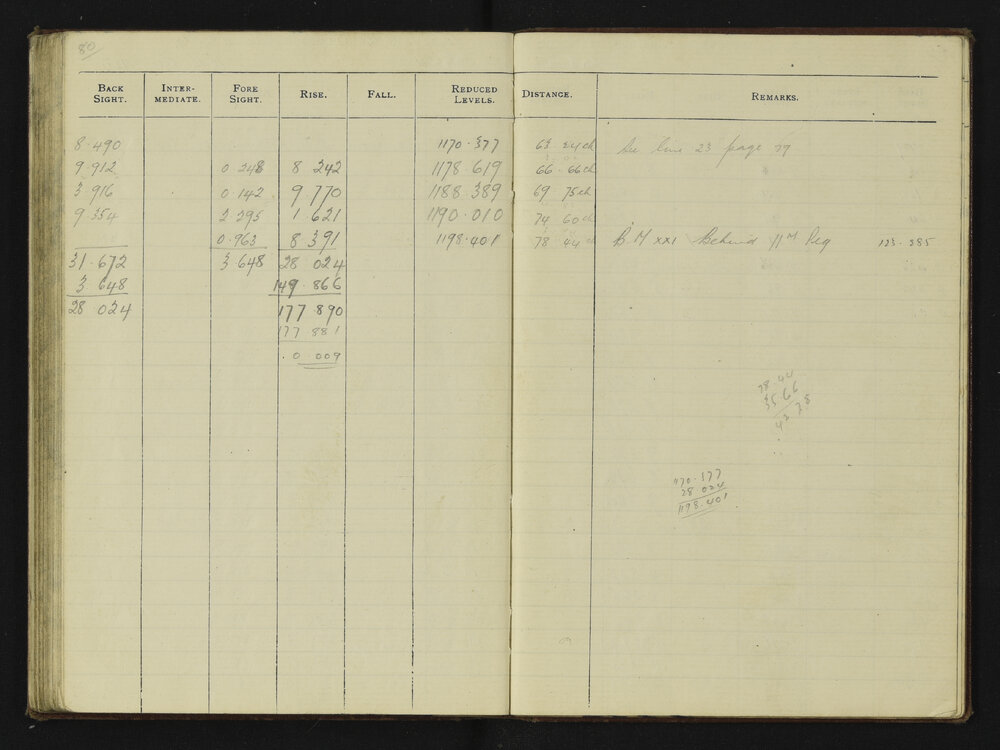 80
BACK SIGHT. INTER-MEDIATE. FORE SIGHT. RISE. FALL. REDUCED LEVELS. DISTANCE. REMARKS.
8.490 1170.377 63.24ch See line 23 page 79
9.912 0.248 8 242 1178.619 66.66ch
3.916 0.142 9 770 1188.389 69 75ch
9 354 2 295 1 621 1190.010 74 60ch
0.963 8 391 1198.401 78 44ch B.M xxi Behind 11M Peg 123.285
31.672 3.648 28 024
3 648 149.866
28 024 177 890
177 881
0.009
78 44
35 66
42 78
1170.377
28 024
1198.401